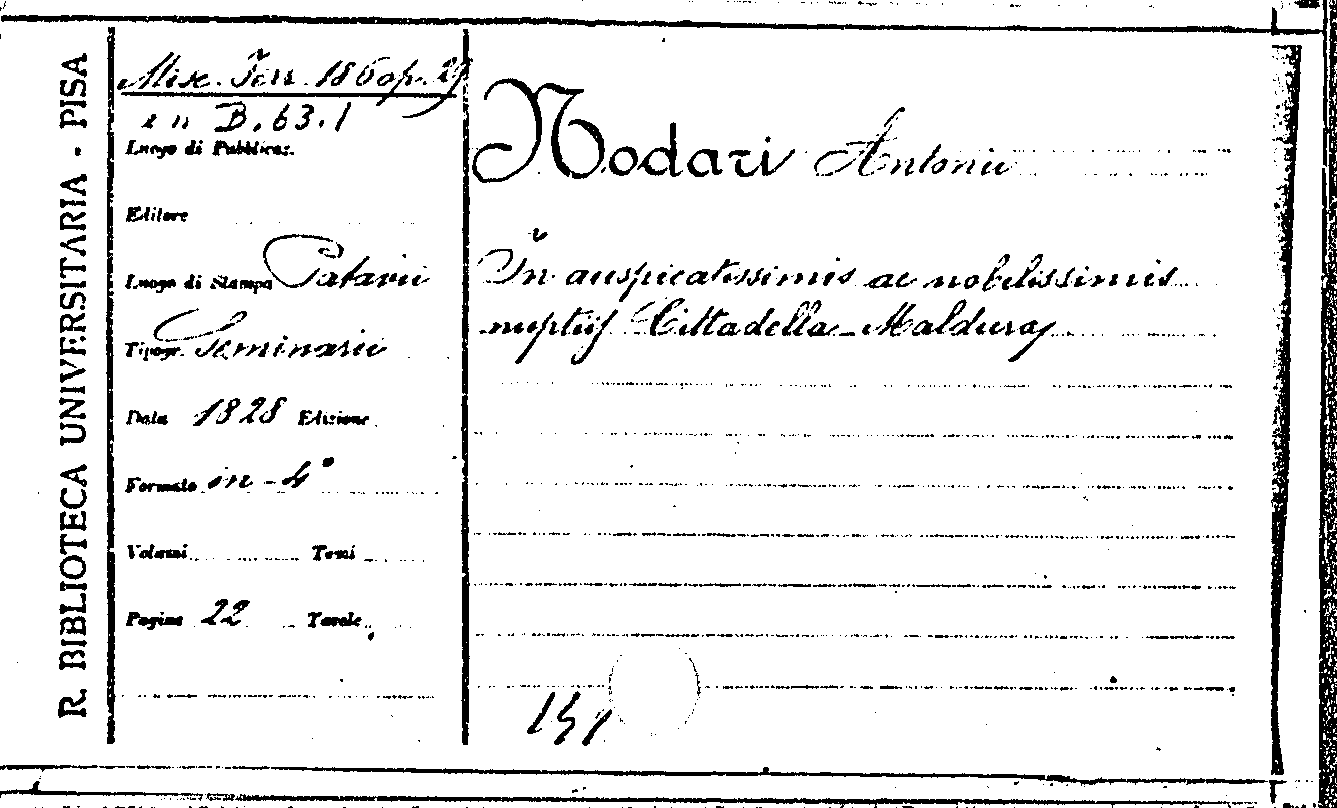 R. BIBLIOTECA UNIVERSITARIA - PISA
Misc. Ferr. 186 op. 29
in B.63.1
Luogo di Pubblicaz.
Editore
Luogo di Stampa Patavii
Tipogr. Seminarii
Data 1828 Edizione
Formato in-4°
Volumi Tomi
Pagine 22 Tavole
Nodari Antonii
In auspicatissimis ac nobilissimis
nuptiis Cittadella-Maldura